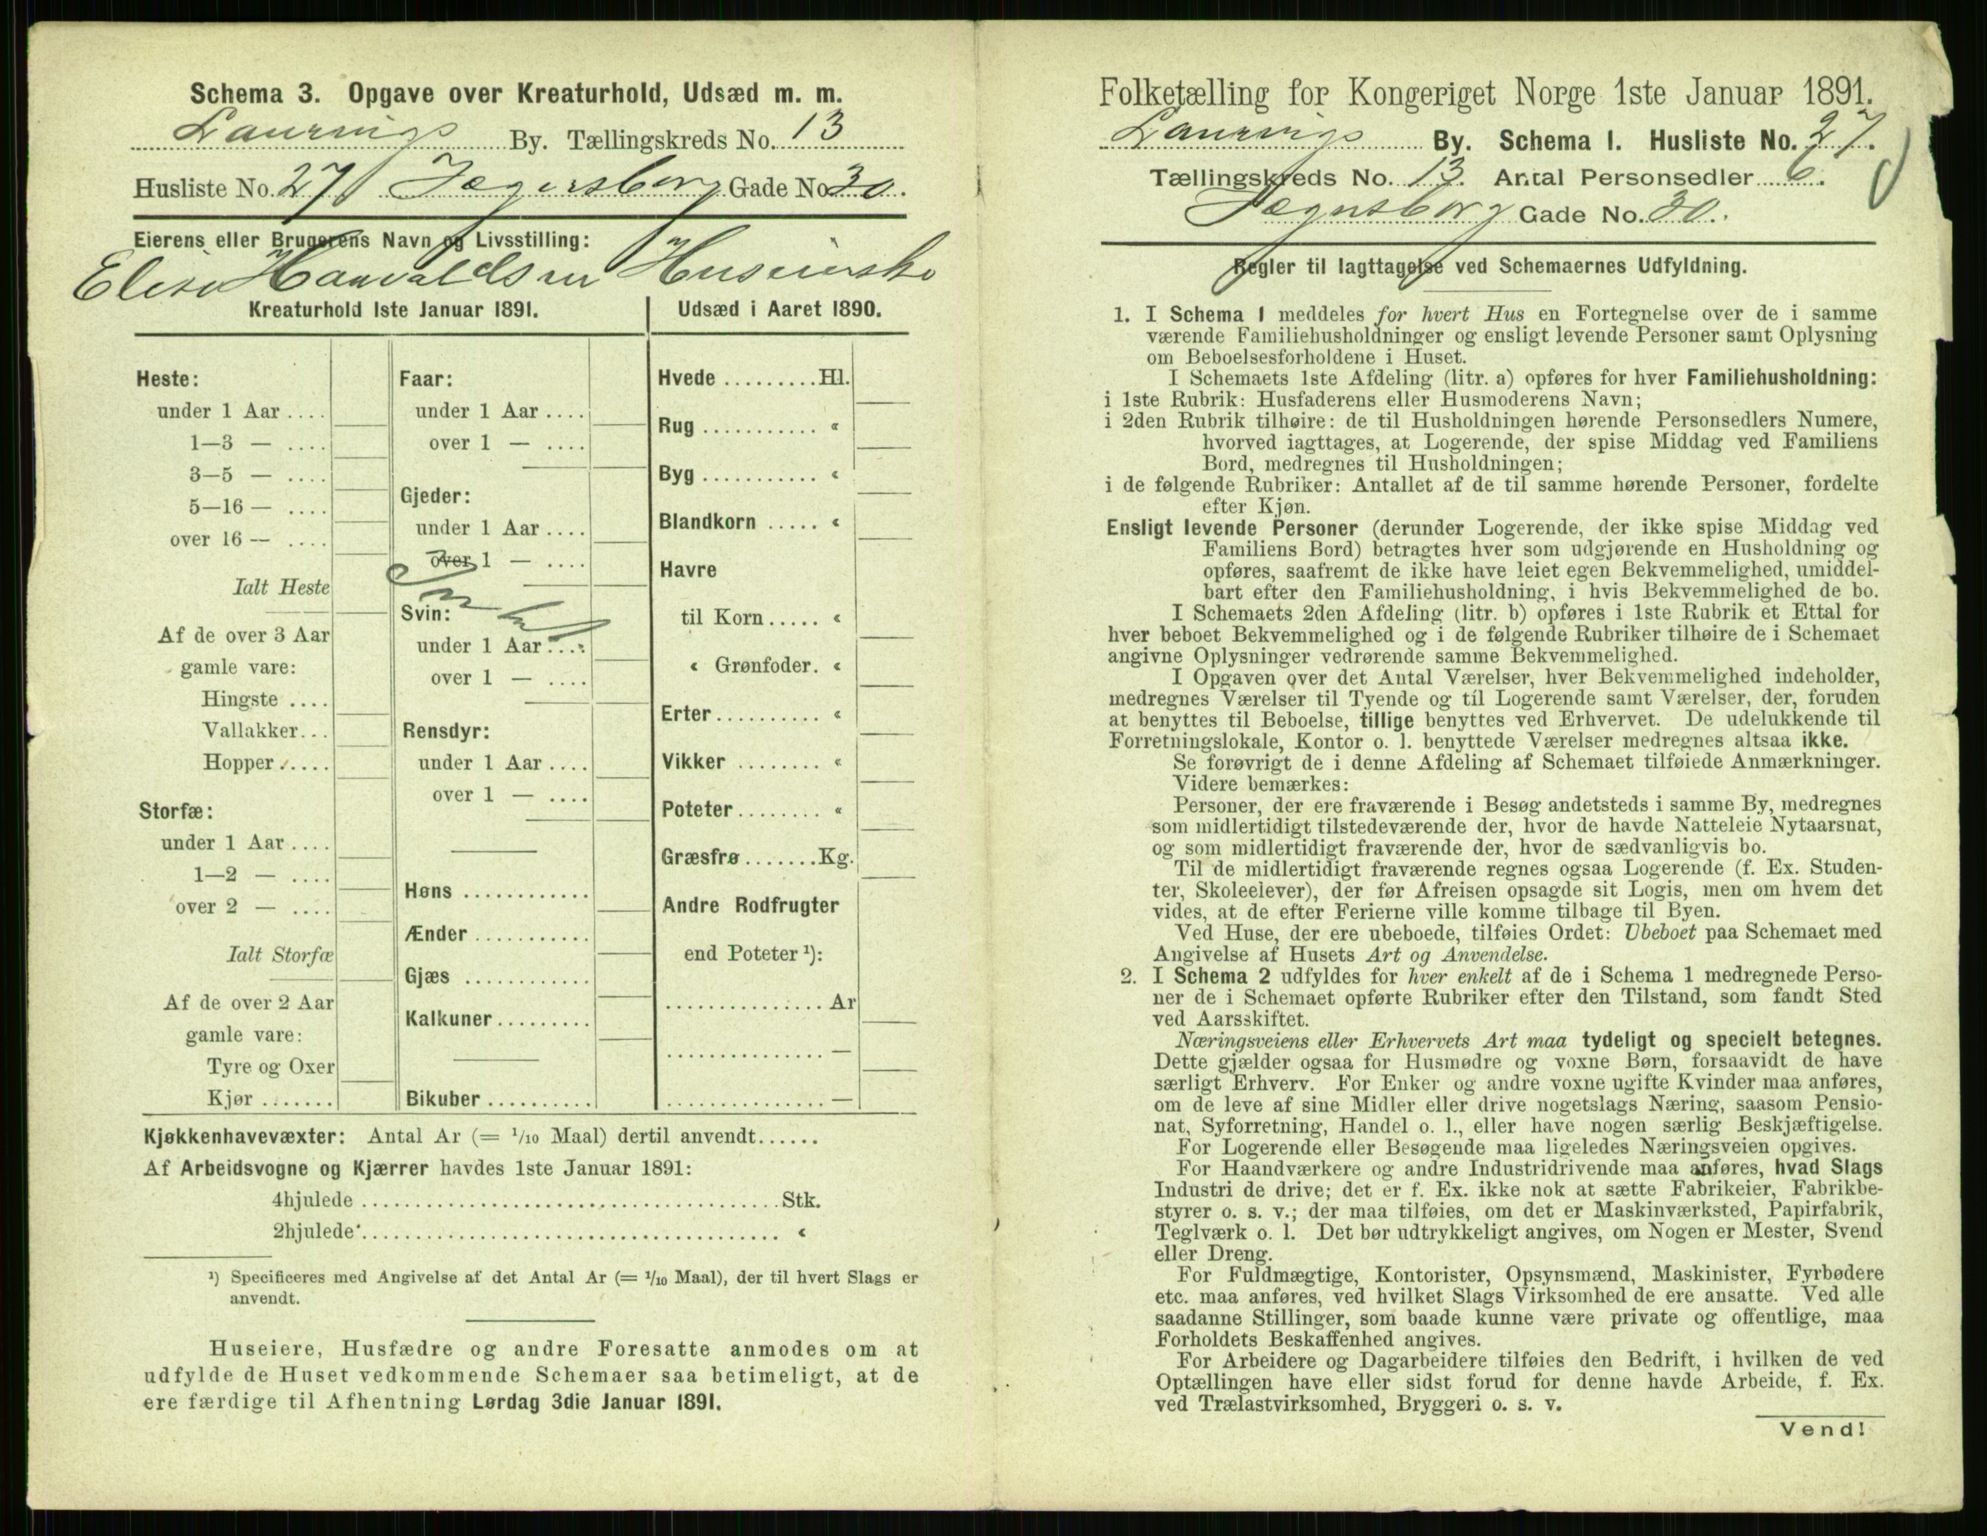 Schema 3. Opgave over Kreaturhold, Udsæd m. m.
Laurvigs By. Tællingskreds No. 13
Husliste No. 27 Jegersborg Gade No 30.
Eierens eller Brugerens Navn og Livsstilling:
Elise Haavaldsen Huseierske
Kreaturhold 1ste Januar 1891.
Heste:
under 1 Aar ....
1—3 — ....
3—5 — ....
5—16 — ....
over 16 — ....
Ialt Heste
Af de over 3 Aar
gamle vare:
Hingste ....
Vallakker...
Hopper .....
Storfæ:
under 1 Aar ....
1—2 — ....
over 2 — ....
Ialt Storfæ
Af de over 2 Aar
gamle vare:
Tyre og Oxer
Kjør .......
Faar:
under 1 Aar ....
over 1 — ....
Gjeder:
under 1 Aar ....
over 1 — ....
Svin:
under 1 Aar ....
over 1 — ....
Rensdyr:
under 1 Aar ....
over 1 — ....
Høns ............
Ænder ...........
Gjæs ............
Kalkuner.........
Bikuber ..........
Udsæd i Aaret 1890.
Hvede .........Hl.
Rug ........... «
Byg ........... «
Blandkorn ..... «
Havre
til Korn..... «
« Grønfoder. «
Erter.......... «
Vikker ........ «
Poteter........ «
Græsfrø.......Kg.
Andre Rodfrugter
end Poteter ¹):
............... Ar
............... —
............... —
Kjøkkenhavevæxter: Antal Ar (= 1/10 Maal) dertil anvendt......
Af Arbeidsvogne og Kjærrer havdes 1ste Januar 1891:
4hjulede ......................................Stk.
2hjulede ...................................... «
¹) Specificeres med Angivelse af det Antal Ar (= 1/10 Maal), der til hvert Slags er
anvendt.
Huseiere, Husfædre og andre Foresatte anmodes om at
udfylde de Huset vedkommende Schemaer saa betimeligt, at de
ere færdige til Afhentning Lørdag 3die Januar 1891.
Folketælling for Kongeriget Norge 1ste Januar 1891.
Laurvigs By. Schema 1. Husliste No. 27.
Tællingskreds No. 13. Antal Personsedler 6.
Jegersborg Gade No. 30.
Regler til Iagttagelse ved Schemaernes Udfyldning.
1. I Schema 1 meddeles for hvert Hus en Fortegnelse over de i samme
værende Familiehusholdninger og ensligt levende Personer samt Oplysning
om Beboelsesforholdene i Huset.
I Schemaets 1ste Afdeling (litr. a) opføres for hver Familiehusholdning:
i 1ste Rubrik: Husfaderens eller Husmoderens Navn;
i 2den Rubrik tilhøire: de til Husholdningen hørende Personsedlers Numere,
hvorved iagttages, at Logerende, der spise Middag ved Familiens
Bord, medregnes til Husholdningen;
i de følgende Rubriker: Antallet af de til samme hørende Personer, fordelte
efter Kjøn.
Ensligt levende Personer (derunder Logerende, der ikke spise Middag ved
Familiens Bord) betragtes hver som udgjørende en Husholdning og
opføres, saafremt de ikke have leiet egen Bekvemmelighed, umiddel-
bart efter den Familiehusholdning, i hvis Bekvemmelighed de bo.
I Schemaets 2den Afdeling (litr. b) opføres i 1ste Rubrik et Ettal for
hver beboet Bekvemmelighed og i de følgende Rubriker tilhøire de i Schemaet
angivne Oplysninger vedrørende samme Bekvemmelighed.
I Opgaven over det Antal Værelser, hver Bekvemmelighed indeholder,
medregnes Værelser til Tyende og til Logerende samt Værelser, der, foruden
at benyttes til Beboelse, tillige benyttes ved Erhvervet. De udelukkende til
Forretningslokale, Kontor o. l. benyttede Værelser medregnes altsaa ikke.
Se forøvrigt de i denne Afdeling af Schemaet tilføiede Anmærkninger.
Videre bemærkes:
Personer, der ere fraværende i Besøg andetsteds i samme By, medregnes
som midlertidigt tilstedeværende der, hvor de havde Natteleie Nytaarsnat,
og som midlertidigt fraværende der, hvor de sædvanligvis bo.
Til de midlertidigt fraværende regnes ogsaa Logerende (f. Ex. Studen-
ter, Skoleelever), der før Afreisen opsagde sit Logis, men om hvem det
vides, at de efter Ferierne ville komme tilbage til Byen.
Ved Huse, der ere ubeboede, tilføies Ordet: Ubeboet paa Schemaet med
Angivelse af Husets Art og Anvendelse.
2. I Schema 2 udfyldes for hver enkelt af de i Schema 1 medregnede Perso-
ner de i Schemaet opførte Rubriker efter den Tilstand, som fandt Sted
ved Aarsskiftet.
Næringsveiens eller Erhvervets Art maa tydeligt og specielt betegnes.
Dette gjælder ogsaa for Husmødre og voxne Børn, forsaavidt de have
særligt Erhverv. For Enker og andre voxne ugifte Kvinder maa anføres,
om de leve af sine Midler eller drive nogetslags Næring, saasom Pensio-
nat, Syforretning, Handel o. l., eller have nogen særlig Beskjæftigelse.
For Logerende eller Besøgende maa ligeledes Næringsveien opgives.
For Haandværkere og andre Industridrivende maa anføres, hvad Slags
Industri de drive; det er f. Ex. ikke nok at sætte Fabrikeier, Fabrikbe-
styrer o. s. v.; der maa tilføies, om det er Maskinværksted, Papirfabrik,
Teglværk o. l. Det bør udtrykkeligt angives, om Nogen er Mester, Svend
eller Dreng.
For Fuldmægtige, Kontorister, Opsynsmænd, Maskinister, Fyrbødere
etc. maa anføres, ved hvilket Slags Virksomhed de ere ansatte. Ved alle
saadanne Stillinger, som baade kunne være private og offentlige, maa
Forholdets Beskaffenhed angives.
For Arbeidere og Dagarbeidere tilføies den Bedrift, i hvilken de ved
Optællingen have eller sidst forud for denne havde Arbeide, f. Ex.
ved Trælastvirksomhed, Bryggeri o. s. v.
Vend!